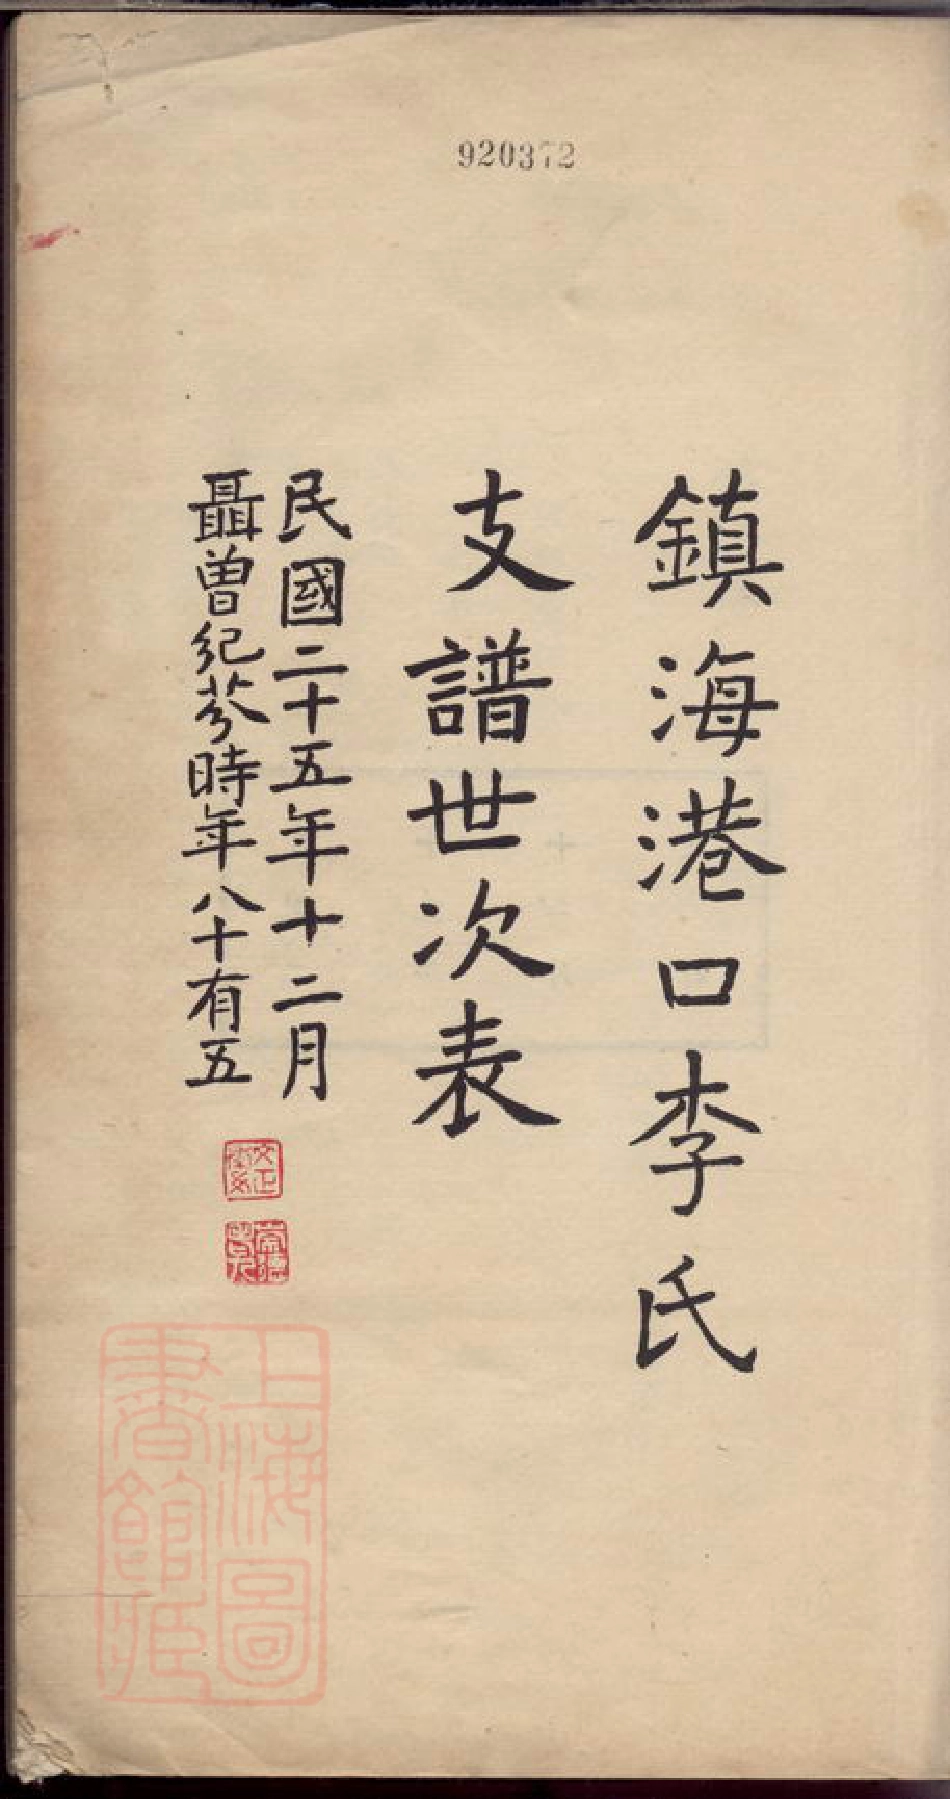 920372
鎮海港口李氏
支譜世次表
民國二十五年十二月
聶曾紀芬時年八十有五
上海圖
書館藏